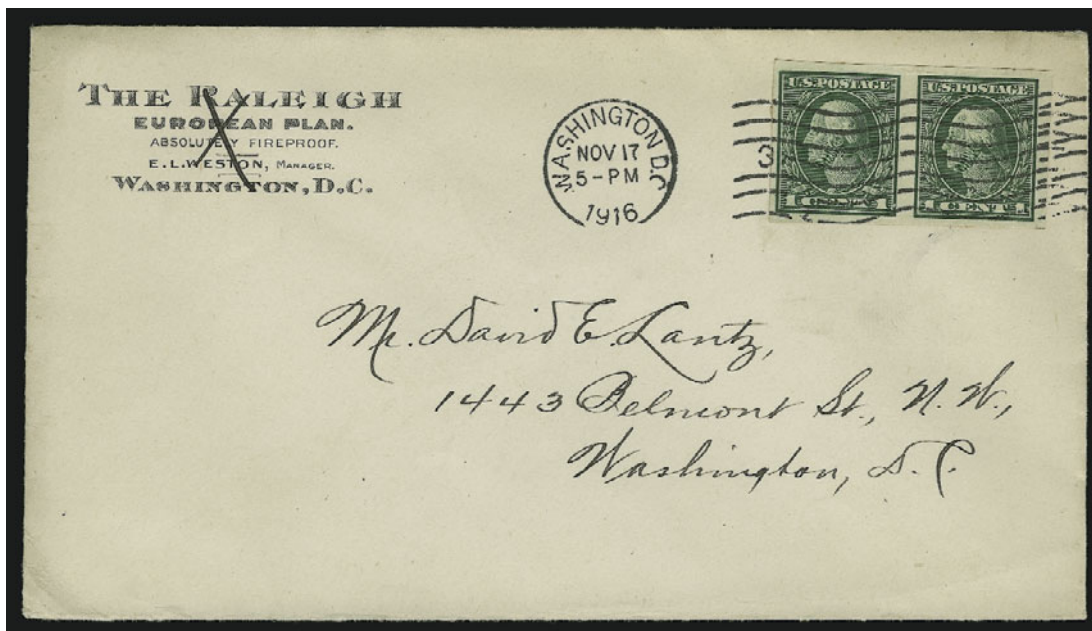 THE RALEIGH
EUROPEAN PLAN.
ABSOLUTELY FIREPROOF.
E.L.WESTON, MANAGER.
WASHINGTON, D.C.
WASHINGTON D.C
NOV 17
5-PM
1916
3
U.S. POSTAGE
1 CENT 1
U.S. POSTAGE
1 CENT 1
Mr. David E. Lantz,
1443 Belmont St., N. W.,
Washington, D. C.